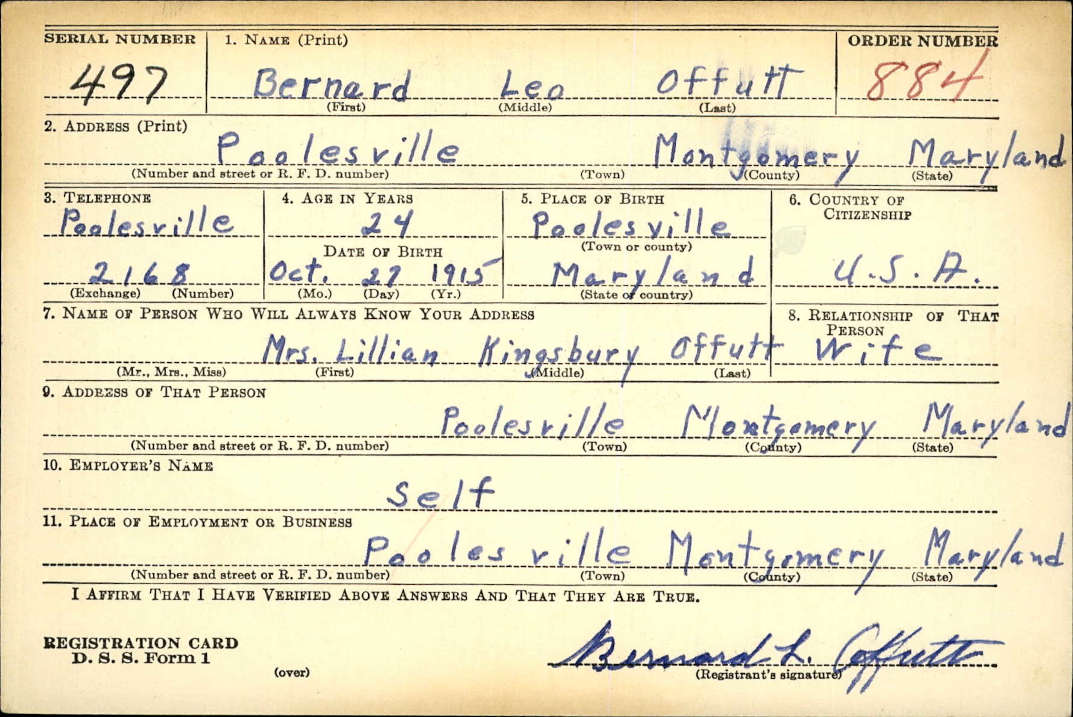 SERIAL NUMBER 1. NAME (Print) ORDER NUMBER
497 Bernard Leo Offutt 884
(First) (Middle) (Last)
2. ADDRESS (Print)
Poolesville Montgomery Maryland
(Number and street or R. F. D. number) (Town) (County) (State)
3. TELEPHONE 4. AGE IN YEARS 5. PLACE OF BIRTH 6. COUNTRY OF CITIZENSHIP
Poolesville 24 Poolesville
DATE OF BIRTH (Town or county)
2168 Oct. 27 1915 Maryland U.S.A.
(Exchange) (Number) (Mo.) (Day) (Yr.) (State or country)
7. NAME OF PERSON WHO WILL ALWAYS KNOW YOUR ADDRESS 8. RELATIONSHIP OF THAT PERSON
Mrs. Lillian Kingsbury Offutt Wife
(Mr., Mrs., Miss) (First) (Middle) (Last)
9. ADDRESS OF THAT PERSON
Poolesville Montgomery Maryland
(Number and street or R. F. D. number) (Town) (County) (State)
10. EMPLOYER'S NAME
Self
11. PLACE OF EMPLOYMENT OR BUSINESS
Poolesville Montgomery Maryland
(Number and street or R. F. D. number) (Town) (County) (State)
I AFFIRM THAT I HAVE VERIFIED ABOVE ANSWERS AND THAT THEY ARE TRUE.
REGISTRATION CARD
D. S. S. Form 1 Bernard L. Offutt
(over) (Registrant's signature)